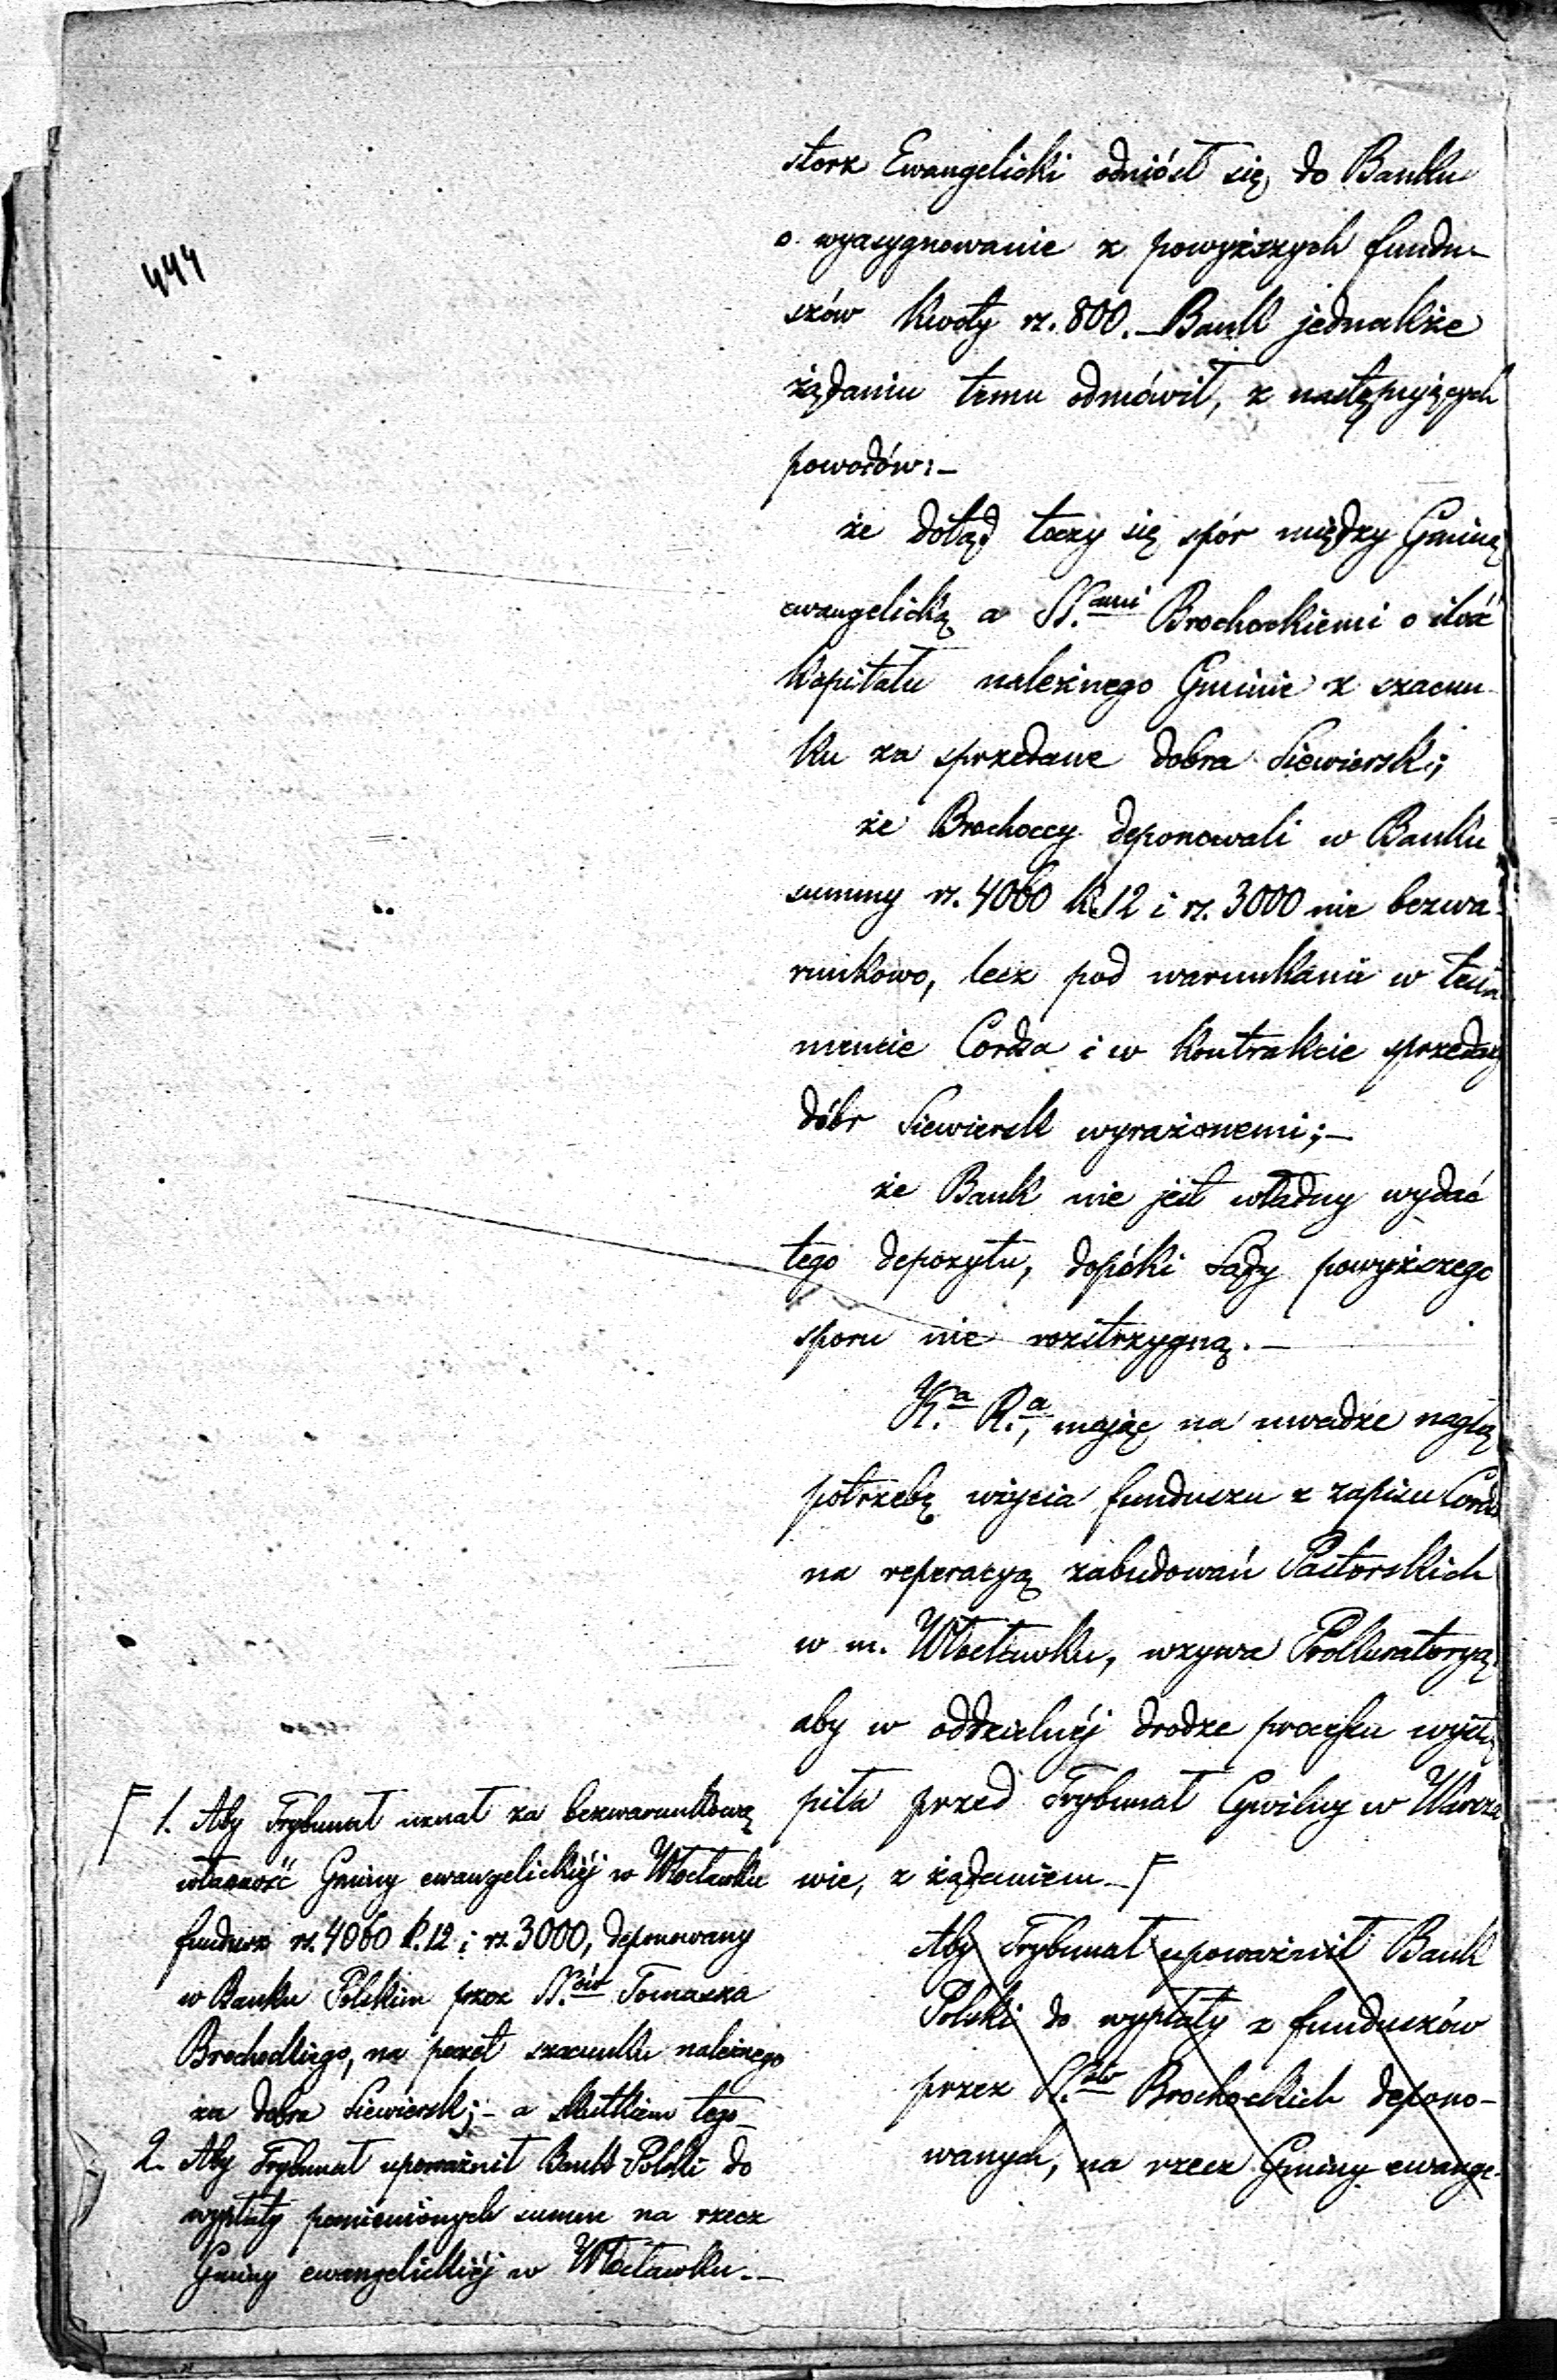 444
storz Ewangelicki odniósł się, do Banku
o wyasygnowanie z powyższych fundu-
szów kwoty rs. 800. – Bank jednakże
żądaniu temu odmówił, z następujących
powodów: –
że dotąd toczy się spór między Gminą
ewangelicką a SS.ami Brochockiemi o ilość
kapitału należnego Gminie z szacun-
ku za sprzedane dobra Siewiersk;
że Brochoccy deponowali w Banku
summy rs. 4060 k. 12 i rs. 3000 nie bezwa-
runkowo, lecz pod warunkami w testa
mencie Cordsa i w kontrakcie sprzedaży
dóbr Siewiersk wyrażonemi; –
że Bank nie jest władny wydać
tego depozytu, dopóki Sądy powyższego
sporu nie rozstrzygną. –
K.a R.a, mając na uwadze nagłą
potrzebę użycia funduszu z zapisu Cords
na reperacyą zabudowań Pastorskich
w m. Włocławku, wzywa Prokuratoryą
aby w oddzielnéj drodze processu wystą
piła przed Trybunał Cywilny w Warsza
wie, z żądaniem – F
Aby Trybunał upoważnił Bank
Polski do wypłaty z funduszów
przez SS.ów Brochockich depono-
wanych, na rzecz Gminy ewange-
F 1. Aby Trybunał uznał za bezwarunkową
własność Gminy ewangelickiéj w Włocławku
fundusz rs. 4060 k. 12 i rs. 3000, deponowany
w Banku Polskim przez SS.ów Tomasza
Brochockiego, na poczet szacunku należnego
za dobra Siewiersk; – a skutkiem tego –
2. Aby Trybunał upoważnił Bank Polski do
wypłaty pomienionych summ na rzecz
Gminy ewangelickiéj w Włocławku. –